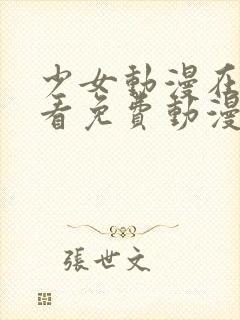 少女動漫在
看免費動漫
張世文